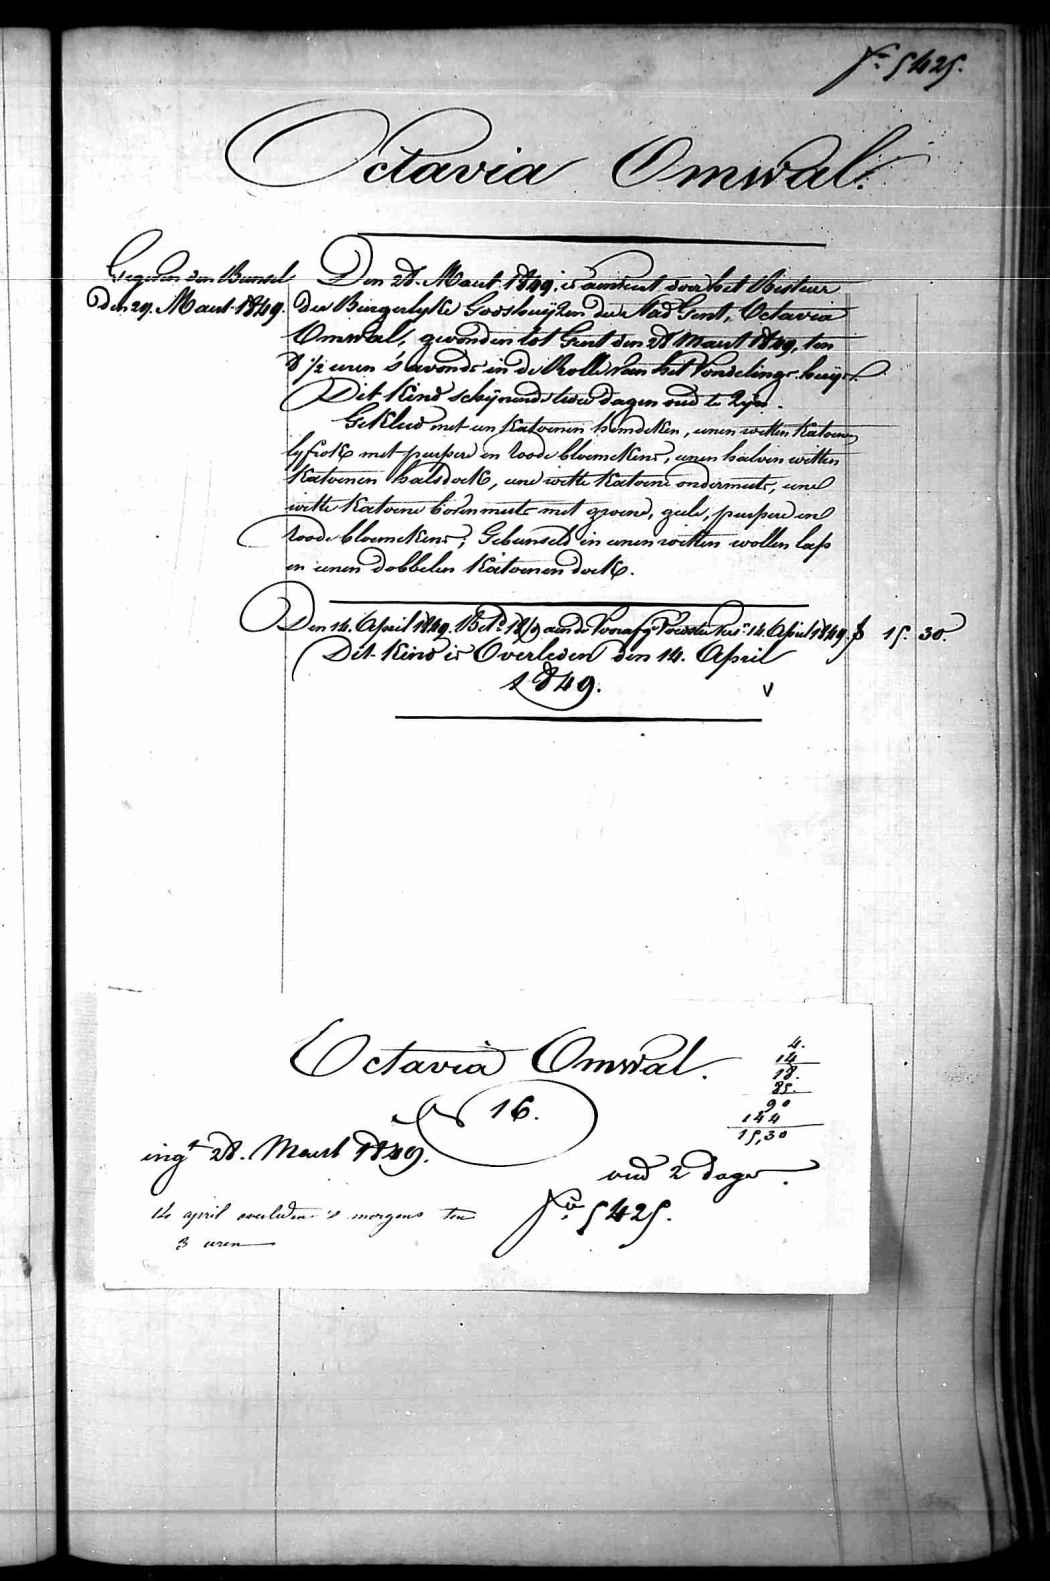 N.º 5425.
Octavia Omwal.
Gegeven den Bunsel
den 29. Maart 1849.
Den 28. Maart 1849, is door het Bestier
der Burgerlyke Godshuijzen der Stad Gent, Octavia
Omwal, gevonden tot Gent den 28 Maart 1849, ten
8 1/2 uren 's avonds in de Rolle van het Vondelings-huijs.
Dit Kind schijnende twee dagen oud te zyn.
Gekleed met een Katoenen hemdeken, eenen witten Katoenen
lyfrok met purpere en roode bloemekens, eenen halven witten
Katoenen halsdoek, eene witte Katoene ondermuts, eene
witte Katoene bovenmuts met groene, geele, purpere en
roode bloemekens; Gebunseld in eenen witten wollen lap
en eenen dobbelen Katoenen doek.
Den 14. April 1849. 14. April 1849. f 15. 30.
Dit Kind is Overleden den 14. April
1849.
V
Octavia Omwal.
4.
14
18.
85.
90
144
15,30
N 16.
ingt 28. Maart 1849.
oud 2 dagen.
14 april overleden 's morgens ten
3 uren
Nº 5425.